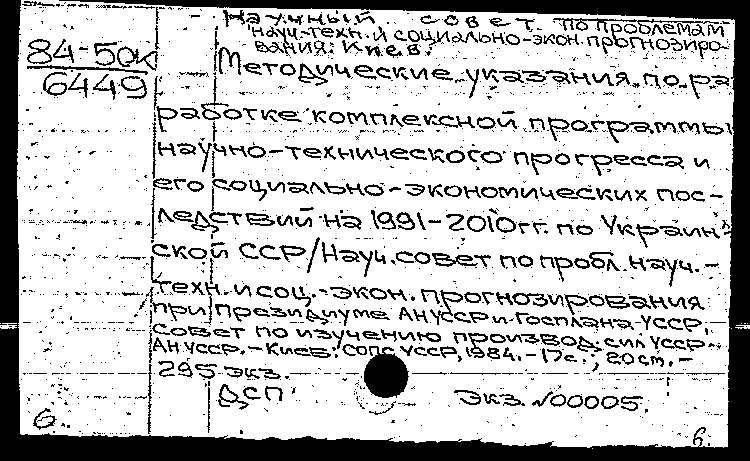 Научный совет по проблемам
науч.-техн. и социально-экон. прогнозиро-
вания. Киев.
84-50к
6449
Методические указания по ра
работке комплексной программы
научно-технического прогресса и
его социально-экономических пос-
ледствий на 1991-2010гг. по Украин-
ской ССР/Науч. совет по пробл. науч.-
техн. и соц.-экон. прогнозирования
при президиуме АН УССР и Госплана УССР,
Совет по изучению производ. сил УССР
АН УССР.-Киев: СОПС УССР, 1984.-17с.; 20см.-
295 экз.
ДСП
Экз. №00005.
6.
6.